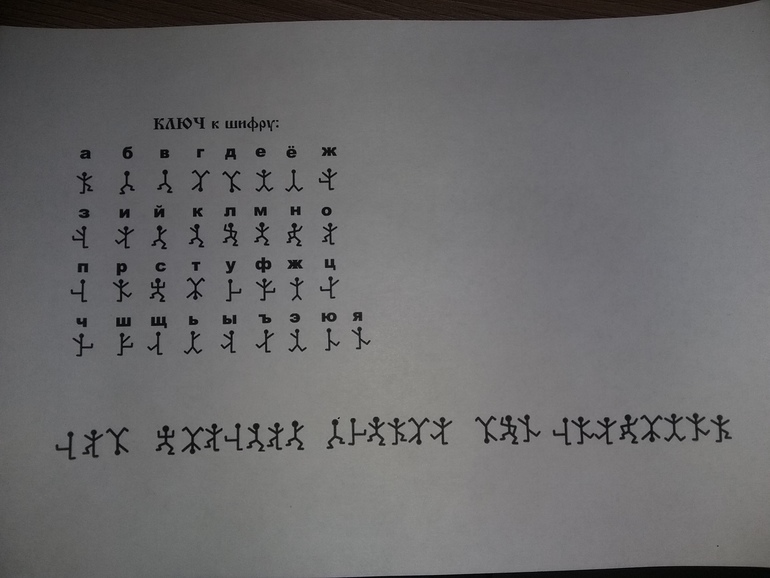 КЛЮЧ к шифру:
а б в г д е ё ж
з и й к л м н о
п р с т у ф ж ц
ч ш щ ь ы ъ э ю я